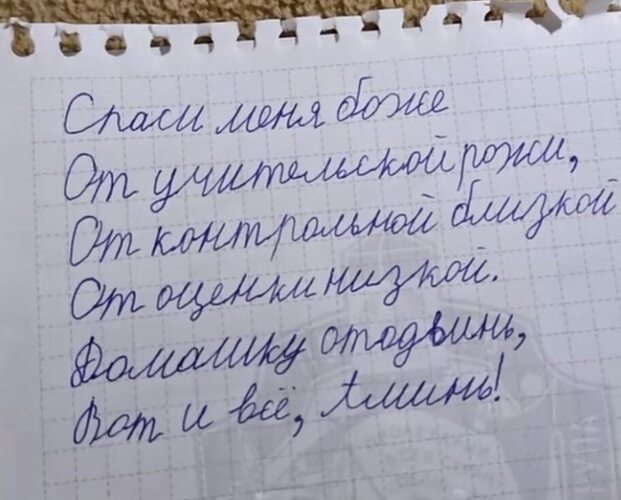 Спаси меня боже
От учительской рожи,
От контрольной близкой
От оценки низкой.
Домашку отодвинь,
Вот и всё, Аминь!